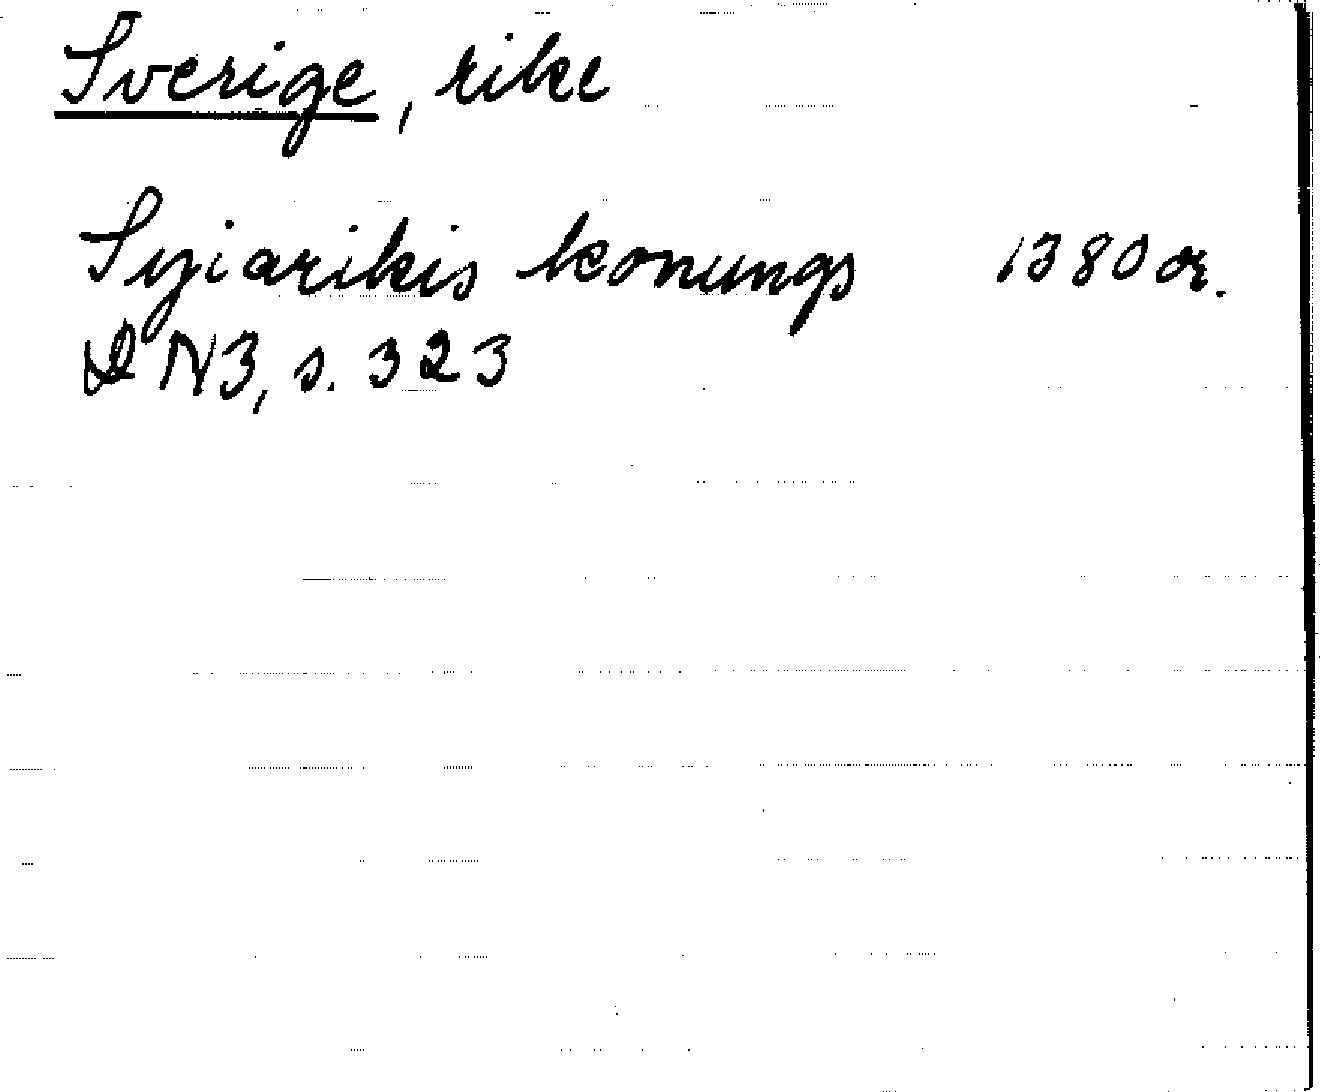 Sverige, rike
Syiarikis konungs 1380 or.
DN3, s. 323